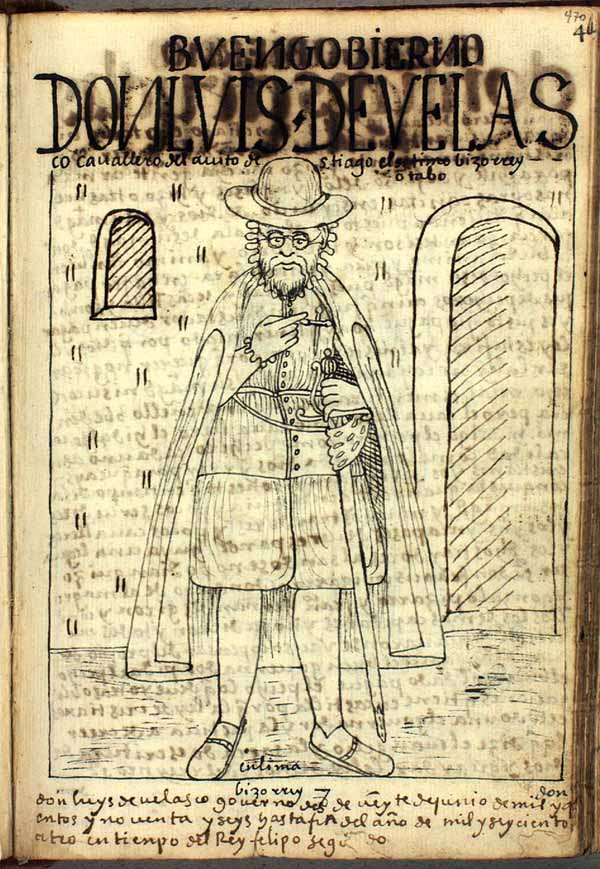 470
BVENGOBIERNO
DONLVIS·DEVELAS
co cauallero del auito de s tiago el setimo bizorrey
otabo
en lima
bizorrey
don
don luys de uelasco governo de ueyte de junio de mil y
entos y nouenta y seys hasta fin del año de mil y seyciento
en tienpo del Rey felipo segūdo